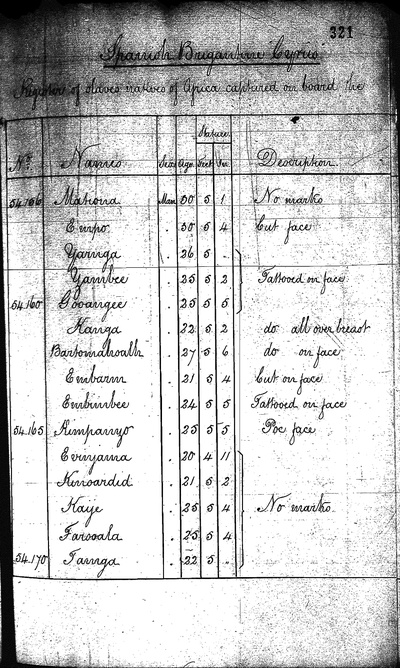 321
Spanish Brigantine Cyrus
Register of slaves natives of Africa captured on board the
Stature
No. Names Sex Age Feet In. Description
54.156 Mationa Man 30 5 1 No marks
Empo . 30 5 4 Cut face
Yamga . 26 5 .
Yambee . 25 5 2 Tattooed on face
54.160 Gooangee . 25 5 5
Kanga . 22 5 2 do all over breast
Bartomahoath . 27 5 6 do on face
Embarm . 21 5 4 Cut on face
Embimbee . 24 5 5 Tattooed on face
54.165 Kimpanyo . 25 5 5 Poc face
Evinyama . 20 4 11
Kinoarded . 21 5 2
Kaye . 25 5 4 No marks
Farsoala . 25 5 4
54.170 Tamga . 22 5 .